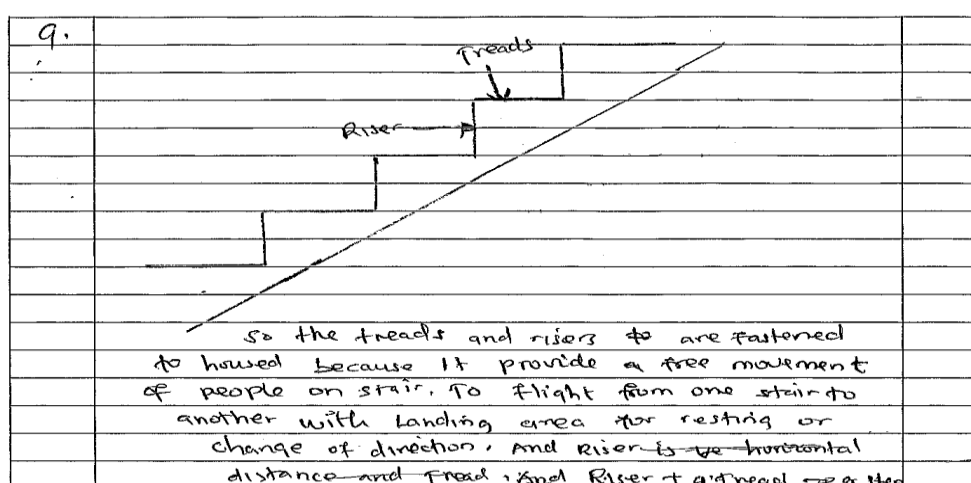 9.
Treads
Riser
so the treads and risers to are fastened
to housed because it provide a free movement
of people on stair. To flight from one stair to
another with Landing area for resting or
change of direction. And Riser is ve horizontal
distance and Tread, And Riser +